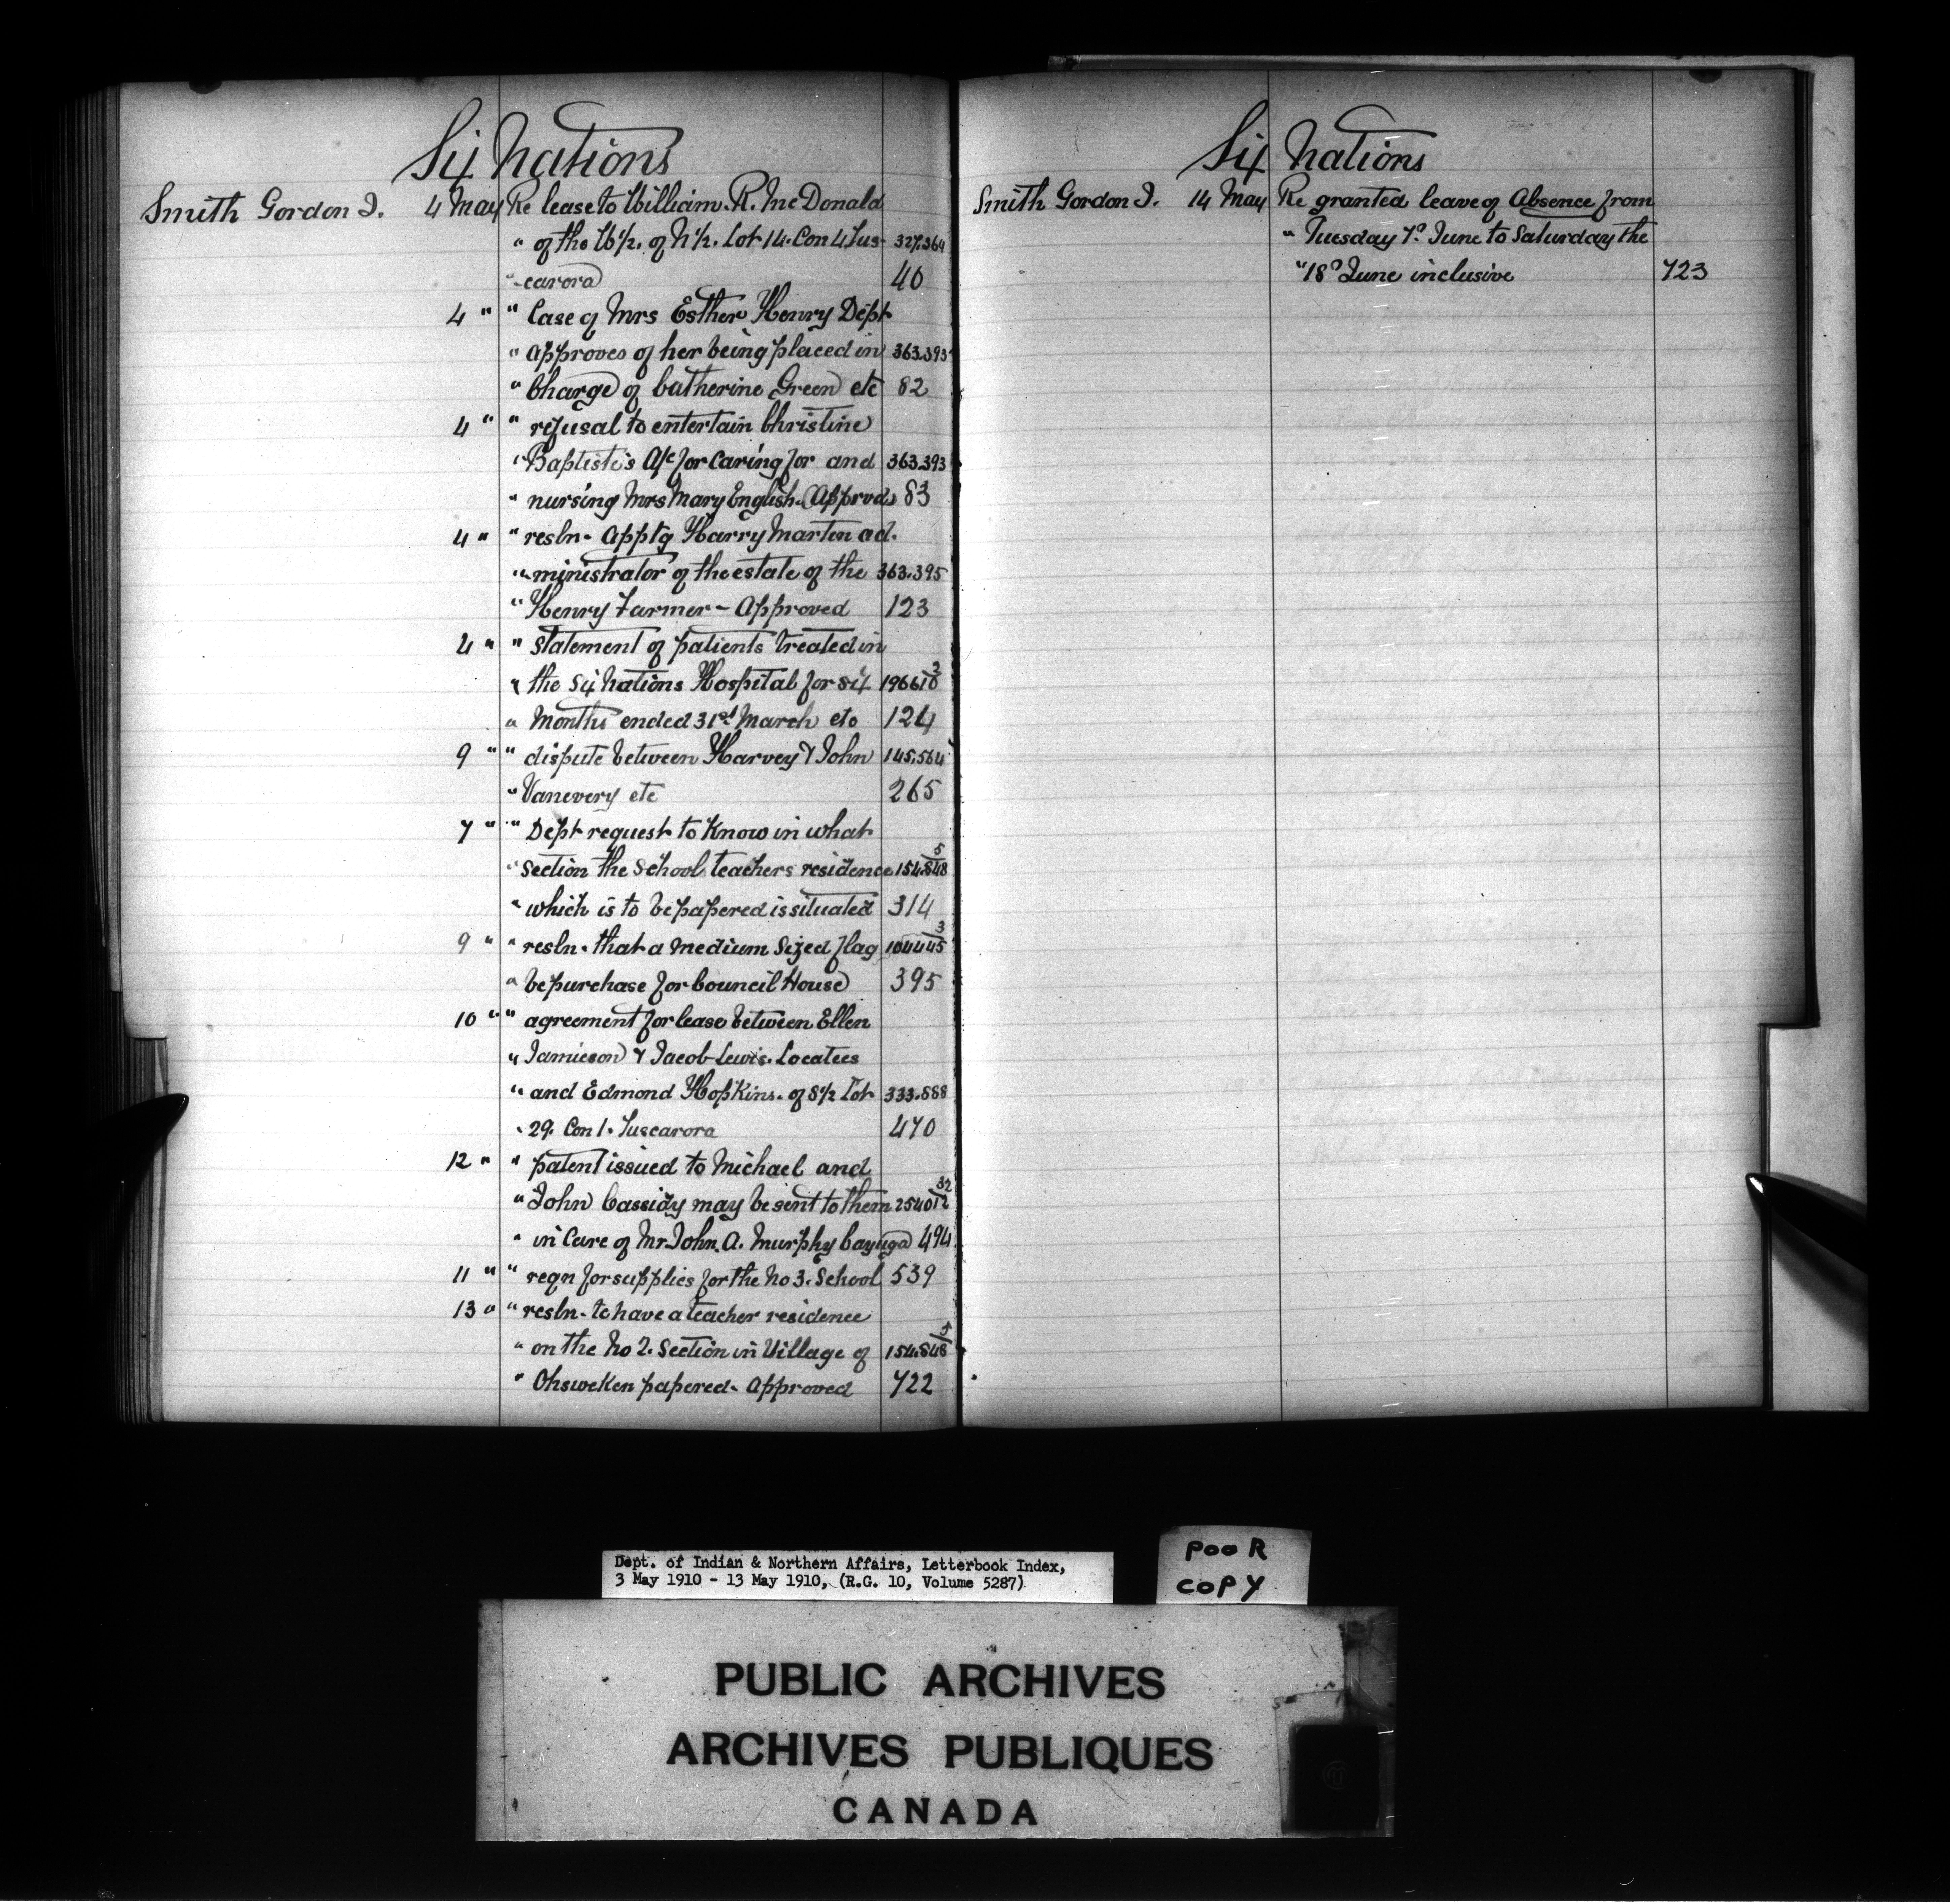 Six Nations
Smith Gordon J. 4 May Re lease to William. R. McDonald
" of the W½. of N½. Lot 14. Con 4 Tus- 327.364
" -carora 40
4 " " Case of Mrs Esther Henry Dept
" approves of her being placed in 363.393
" Charge of Catherine Green etc 82
4 " " refusal to entertain Christine
" Baptiste's A/c for caring for and 363.393
" nursing Mrs Mary English. Approvd 83
4 " " resln- apptg Harry Martin ad-
" ministrator of the estate of the 363.395
" Henry Farmer - Approved 123
4 " " statement of patients treated in
" the Six Nations Hospital for six 19661
" Months ended 31st March etc 124
9 " " dispute between Harvey & John 145.564
" Vanevery etc 265
7 " " Dept request to know in what
" section the School teachers residence 154.848 5
" which is to be papered is situated 314
9 " " resln. that a medium sized flag 104445 3
" be purchase for Council House 395
10 " " agreement for lease between Ellen
" Jamieson & Jacob Lewis. Locatees
" and Edmond Hopkins. of S½ Lot 333.888
" 29. Con 1. Tuscarora 470
12 " " patent issued to Michael and
" John Cassidy may be sent to them 254012 32
" in Care of Mr. John. A. Murphy Cayuga 494
11 " " reqn for supplies for the No 3. School 539
13 " " resln- to have a teacher residence
" on the No 2. Section in Village of 154.848 5
" Ohsweken papered- approved 722
Six Nations
Smith Gordon J. 14 May Re granted leave of Absence from
" Tuesday 7º June to Saturday the
" 18º June inclusive 723
Dept. of Indian & Northern Affairs, Letterbook Index,
3 May 1910 - 13 May 1910, (R.G. 10, Volume 5287)
POOR
COPY
PUBLIC ARCHIVES
ARCHIVES PUBLIQUES
CANADA